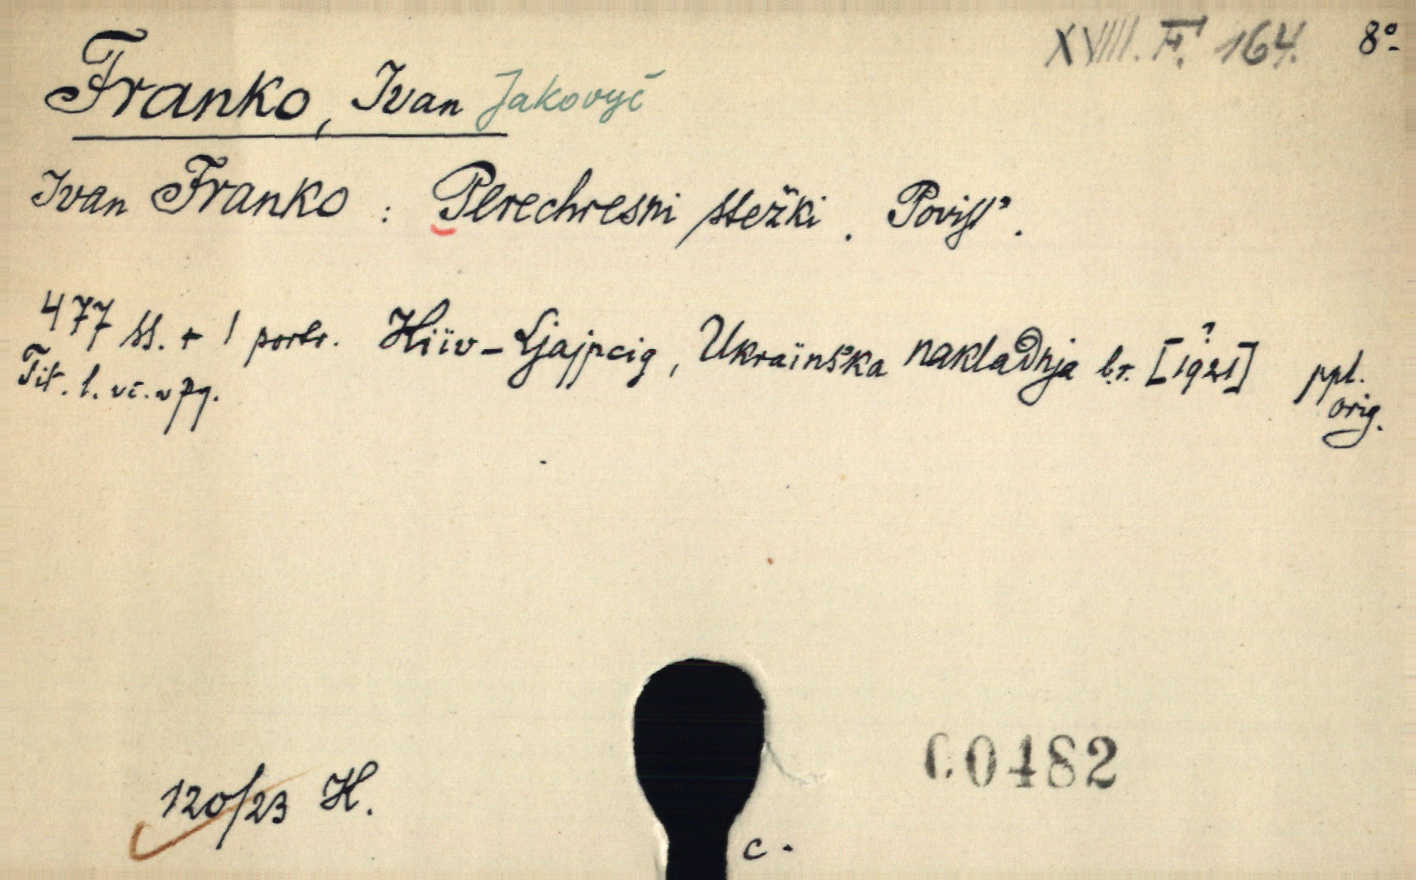 XVIII. F. 164. 8°
Franko, Ivan Jakovyč
Ivan Franko : Perechresni stežki. Povist'.
477 ss. + 1 portr. Kiïv-Ljajpcig, Ukraïnśka nakladnja b.r. [1921?] ppl. orig.
Tit. l. vč. v pg.
120/23 H.
C.0482
c.